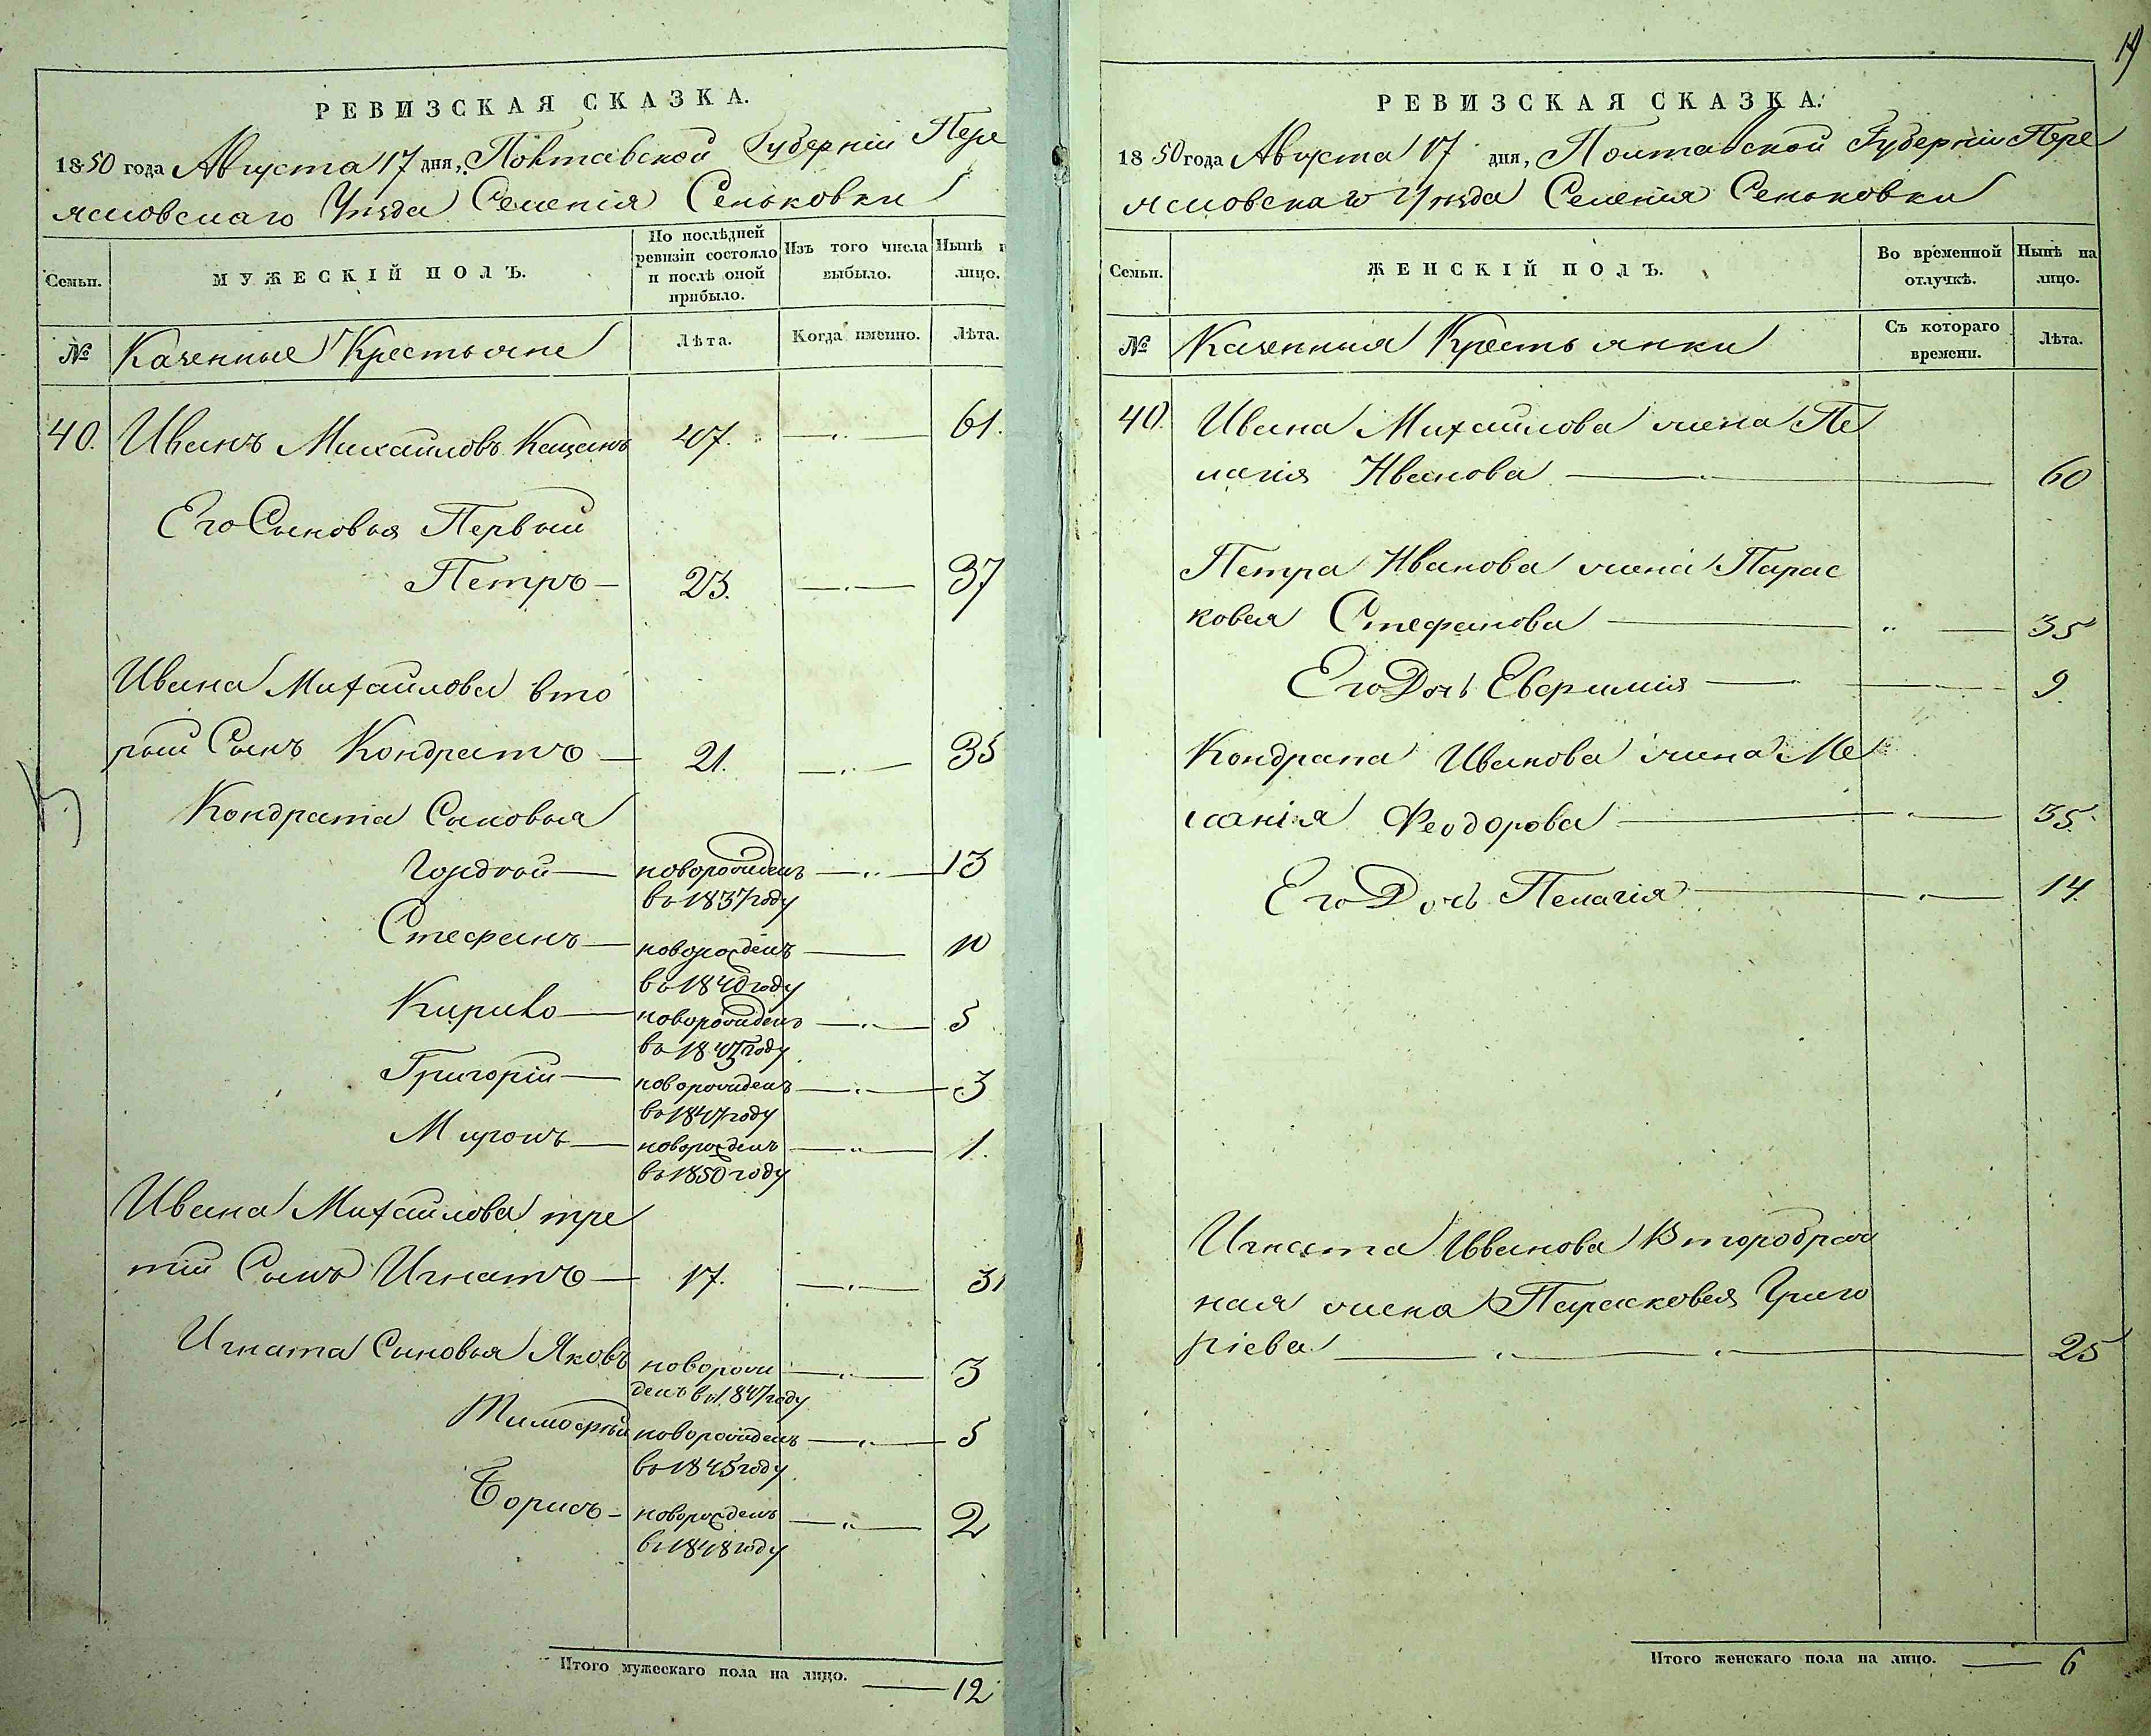 РЕВИЗСКАЯ СКАЗКА.
1850 года Августа 17 дня, Полтавской Губерніи Пере
яславскаго Уѣзда Селенія Сеньковки
Семьи.
МУЖЕСКІЙ ПОЛЪ.
По послѣдней ревизіи состояло и послѣ оной прибыло.
Изъ того числа выбыло.
Нынѣ н
лицо.
№ Казенные Крестьяне
Лѣта.
Когда именно.
Лѣта.
40. Иванъ Михайловъ Кацанъ 47. 61.
Его Сыновья Первый
Петръ 23. 37
Ивана Михайлова вто
рый Сынъ Кондратъ 21. 35
Кондрата Сыновья
Гордѣй новорожденъ 13
въ 1837 году
Стефанъ новорожденъ 10
въ 1840 году
Кирило новорожденъ 5
въ 1845 году
Григорій новорожденъ 3
въ 1847 году
Миронъ новорожденъ 1.
въ 1850 году
Ивана Михайлова тре
тій Сынъ Игнатъ 17. 31
Игната Сыновья Яковъ новорож 3
денъ въ 1847 году
Тимофѣй новорожденъ 5
въ 1845 году
Борисъ новорожденъ 2
въ 1848 году
Итого мужескаго пола на лицо. 12
19
РЕВИЗСКАЯ СКАЗКА.
1850 года Августа 17 дня, Полтавской Губерніи Пере
яславскаго Уѣзда Селенія Сеньковки
Семьи.
ЖЕНСКІЙ ПОЛЪ.
Во временной отлучкѣ.
Нынѣ на лицо.
№ Казенныя Крестьянки
Съ котораго времени.
Лѣта.
40. Ивана Михайлова жена Пе
лагія Иванова 60
Петра Иванова жена Парас
ковья Стефанова 35
Его Дочь Евфимія 9
Кондрата Иванова жена Ме
ланія Феодорова 35.
Его Дочь Пелагія 14.
Игната Иванова Второбрач
ная жена Парасковья Григо
ріева 25
Итого женскаго пола на лицо. 6